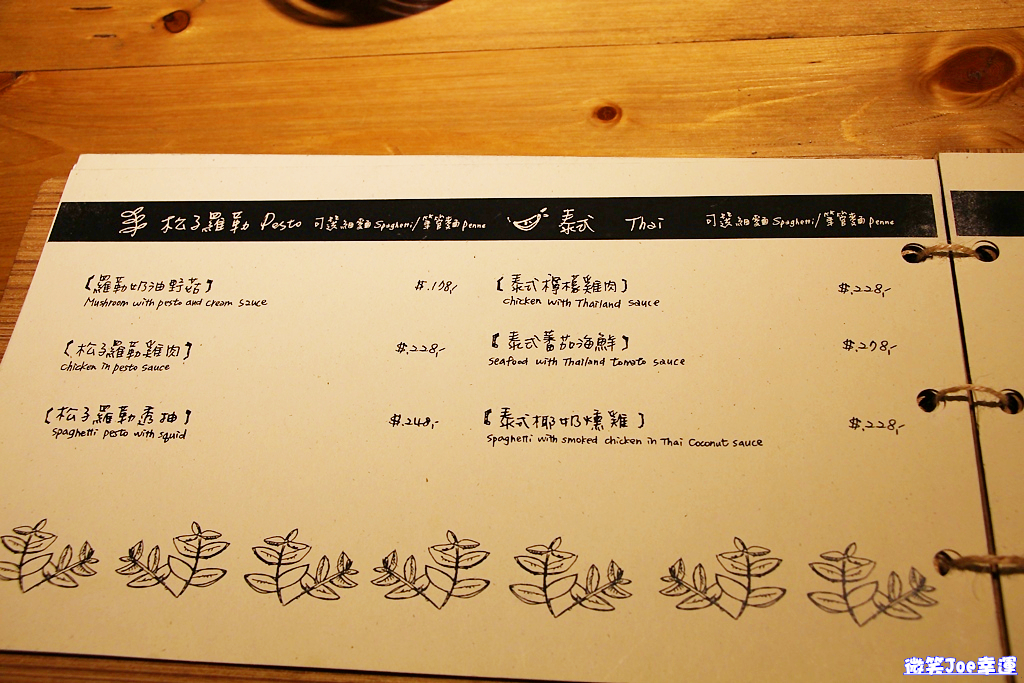 松子羅勒 Pesto 可選細麵 Spaghetti/筆管麵 Penne
【羅勒奶油野菇】 $.198,-
Mushroom with pesto and cream sauce
【松子羅勒雞肉】 $.228,-
chicken in pesto sauce
【松子羅勒透抽】 $.248,-
spaghetti pesto with squid
泰式 Thai 可選細麵 Spaghetti/筆管麵 Penne
【泰式檸檬雞肉】 $.228,-
chicken with Thailand sauce
【泰式蕃茄海鮮】 $.298,-
seafood with Thailand tomato sauce
【泰式椰奶燻雞】 $.228,-
spaghetti with smoked chicken in Thai Coconut sauce
微笑Joe幸運